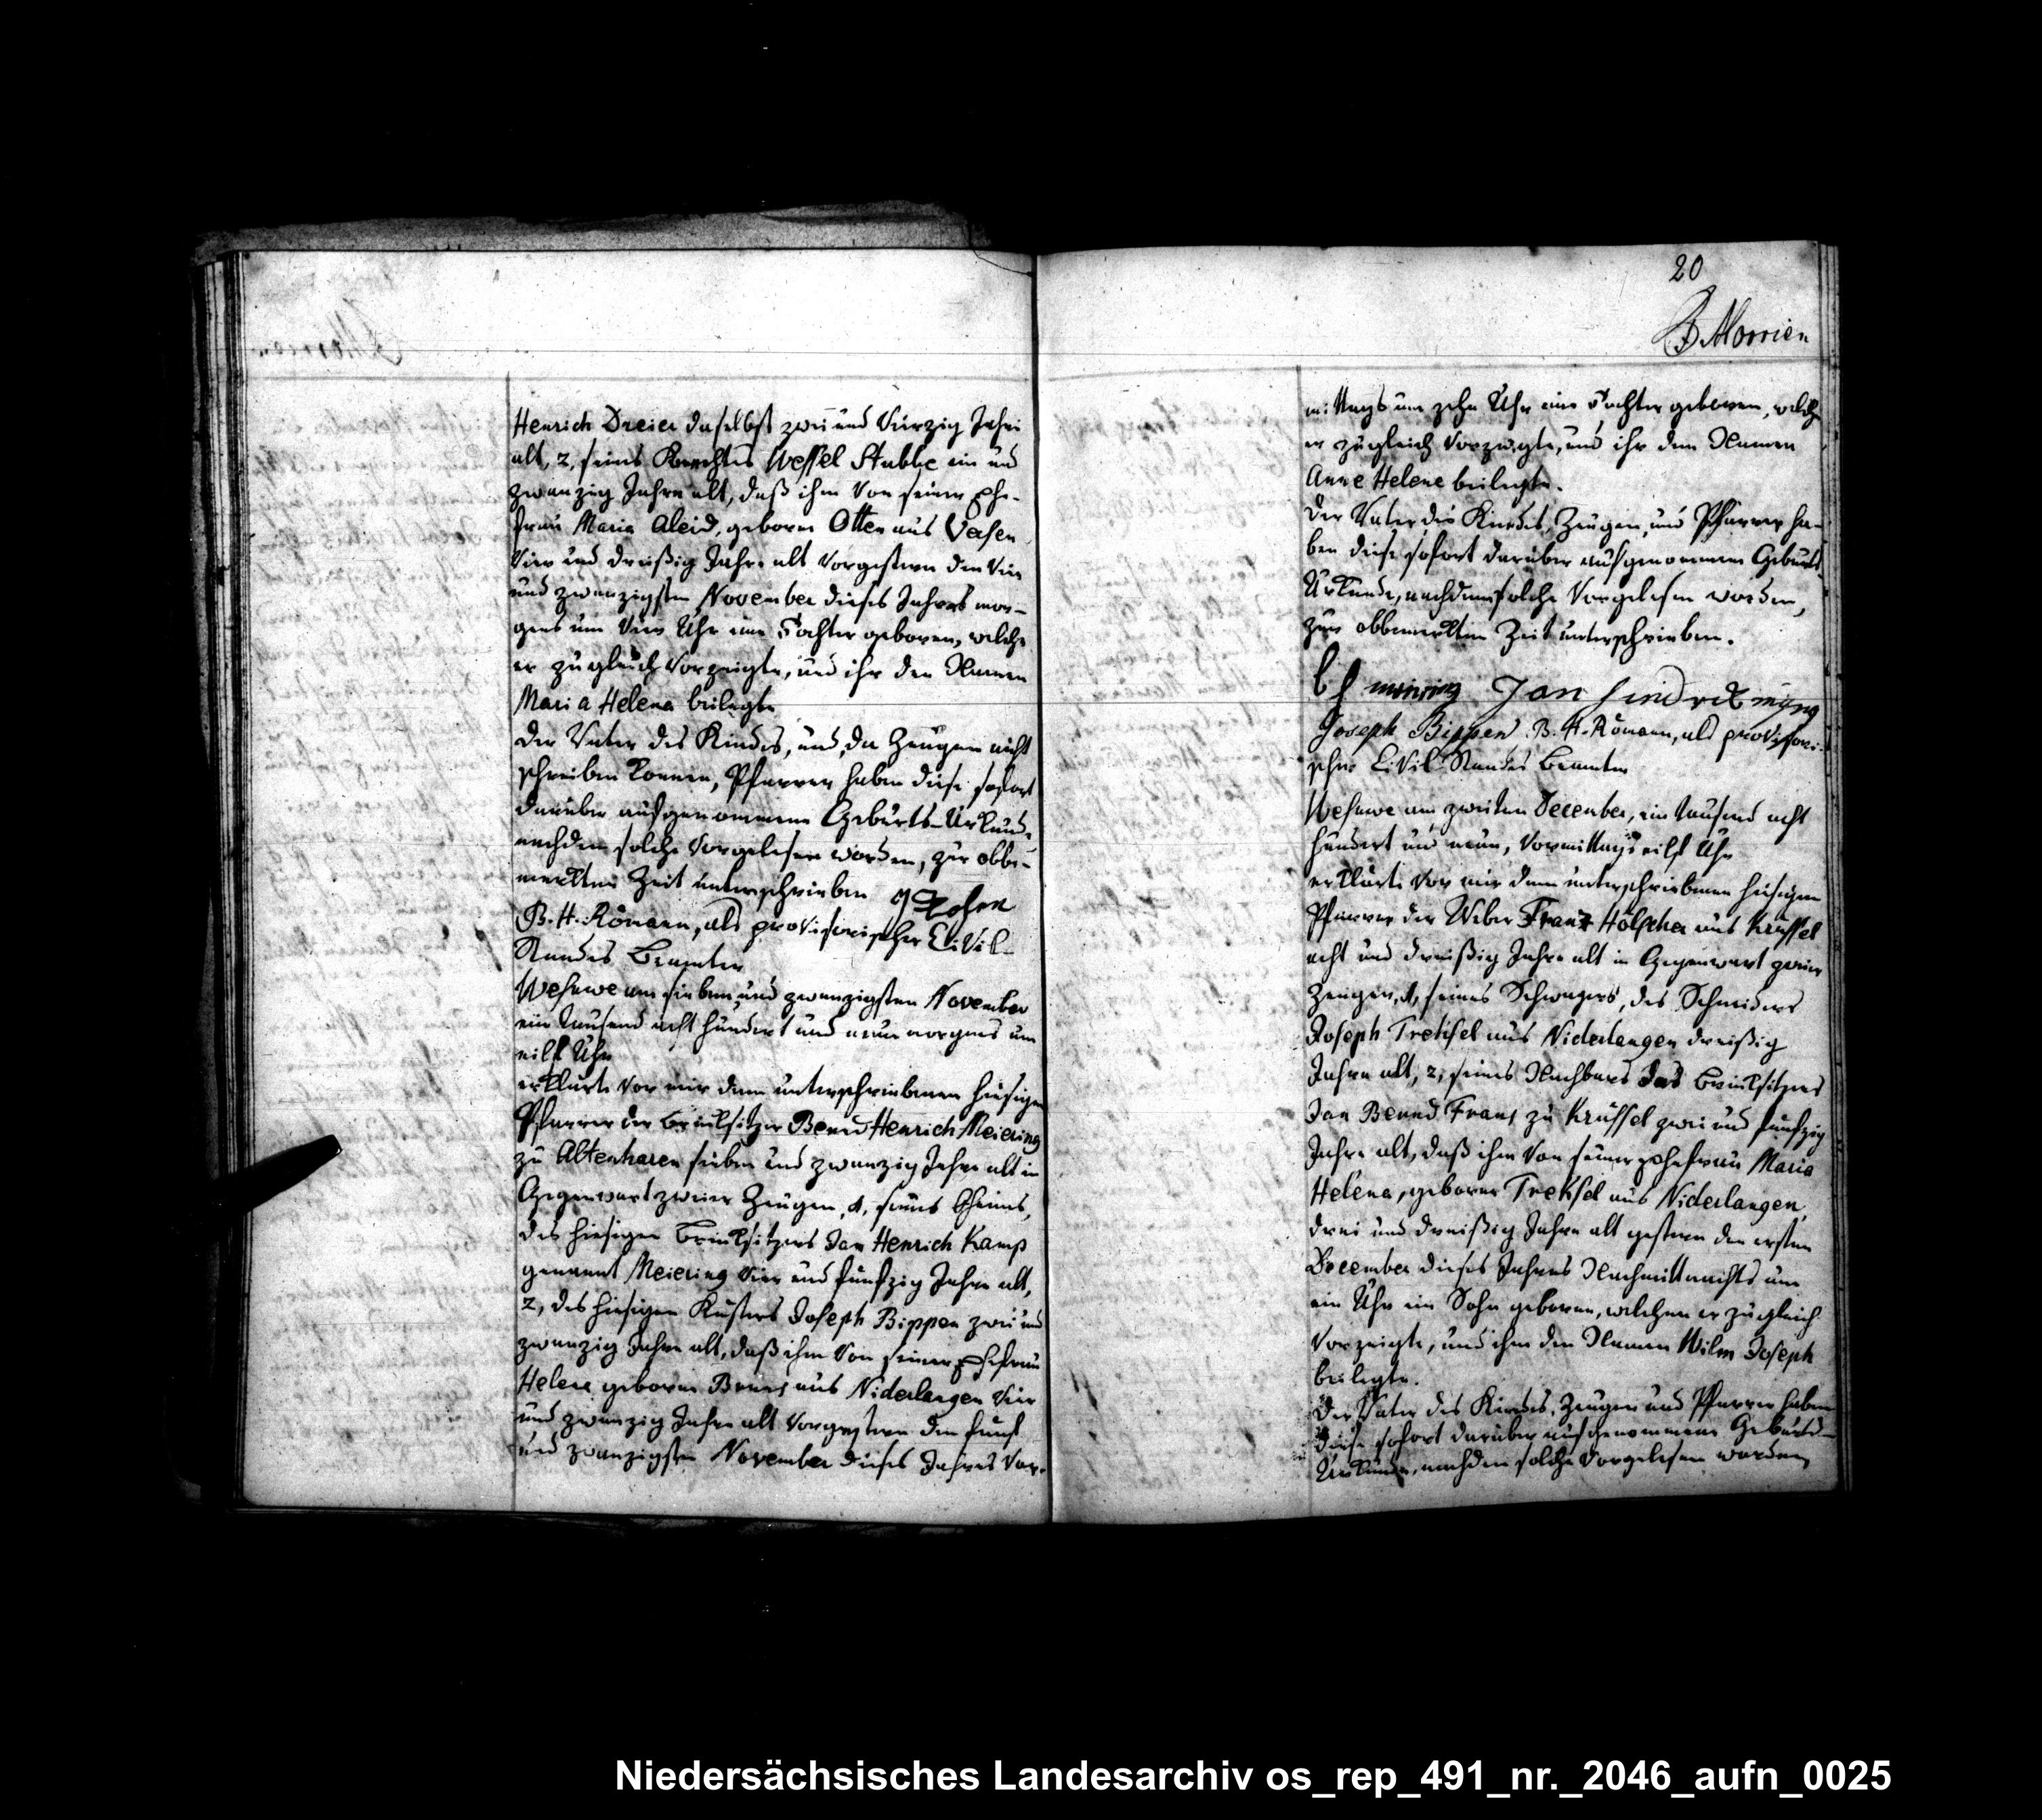 Henrich Dreier daselbst zwei und Vierzig Jahre
alt, 2, seines Knechtes Wessel Stubbe ein und
zwanzig Jahre alt, daß ihm Von seiner Ehe-
frau Maria Aleid, geborne Otten aus Versen
Vier und dreißig Jahre alt Vorgestern den Vier
und zwanzigsten November dieses Jahres mor-
gens um Vier Uhr eine Tochter geboren, welche
er zugleich Vorzeigte, und ihr den Namen
Maria Helena beilegte
Der Vater des Kindes, und, da Zeugen nicht
schreiben konnen, Pfarrer haben diese sofort
darüber aufgenommene Geburts-Urkunde
nachdem solche Vorgelesen worden, zur obbe-
merkten Zeit unterschrieben
B. H. Römann, als provisorischer Civil-
Standes Beamter
Wesuwe am sieben und zwanzigsten November
ein tausend acht hundert und neun morgens um
eilf Uhr
erklärte Vor mir dem unterschriebenen hiesigen
Pfarrer der Brinksitzer Bernd Henrich Meiering
zu Altenharen sieben und zwanzig Jahre alt in
Gegenwart zweier Zeugen, 1, seines Oheims,
des hiesigen Brinksitzers Jan Henrich Kamp
genannt Meiering Vier und fünfzig Jahre alt,
2, des hiesigen Küsters Joseph Bippen zwei und
zwanzig Jahre alt, daß ihm Von seiner Ehefrau
Helene geborne Bruns aus Niderlangen Vier
und zwanzig Jahre alt Vorgestern den fünf
und zwanzigsten November dieses Jahres Vor-
20
B Morrien
mittags um zehn Uhr eine Tochter geboren, welche
er zugleich Vorzeigte, und ihr den Namen
Anne Helene beilegte.
Der Vater des Kindes, Zeugen, und Pfarrer ha-
ben diese sofort darüber aufgenommene Geburts-
Urkunde, nachdem solche Vorgelesen worden,
zur obbemerkten Zeit unterschrieben.
meiring Jan hindrick
Joseph Bippen B. H. Römann, als provisori-
scher Civil Standes Beamter
Wesuwe am zweiten December, ein tausend acht
hundert und neun, Vormittags eilf Uhr
erklärte Vor mir dem unterschriebenen hiesigen
Pfarrer der Weber Franz Hölscher aus Krüssel
acht und dreißig Jahre alt in Gegenwart zweier
Zeugen, 1, seines Schwagers, des Schneiders
Joseph Treksel aus Niderlangen dreißig
Jahre alt, 2, seines Nachbars des Brinksitzers
Jan Bernd Frans zu Krüssel zwei und fünfzig
Jahre alt, daß ihm Von seiner Ehefrau Maria
Helena, geborne Treksel aus Niderlangen,
drei und dreißig Jahre alt gestern den ersten
December dieses Jahres Nachmittnachts um
ein Uhr ein Sohn geboren, welchen er zugleich
Vorzeigte, und ihm den Namen Wilm Joseph
beilegte.
Der Vater des Kindes, Zeugen und Pfarrer haben
diese sofort darüber aufgenommene Geburts-
Urkunde, nachdem solche Vorgelesen worden,
Niedersächsisches Landesarchiv os_rep_491_nr._2046_aufn_0025